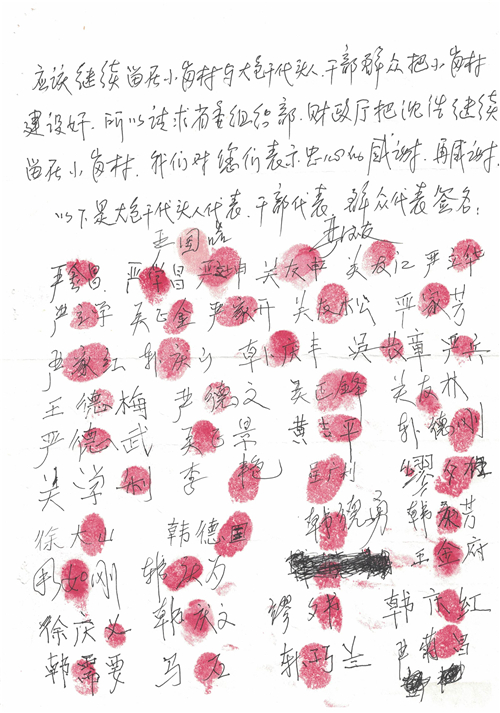 应该继续留在小岗村与大包干代头人、干部群众把小岗村
建设好。所以请求省委组织部、财政厅把沈浩继续
留在小岗村。我们对您们表示忠心的感谢。再感谢。
以下是大包干代头人代表、干部代表、群众代表签名:
严金昌 严俊昌 严立坤 关友申 关友江 严立华
严立学 吴正金 严家齐 关友松 严家芳
严家红 韩庆方 韩庆丰 吴 章 严兵
王德梅 严德文 吴正 关友林
严德武 吴 景 黄吉平 韩德刚
吴学刚 李艳 缪
徐大山 韩德国 韩德勇 韩永芳
周如刚 韩 为 王金府
徐庆义 韩庆文 缪 韩庆红
韩需要 马 韩巧兰 严菊昌